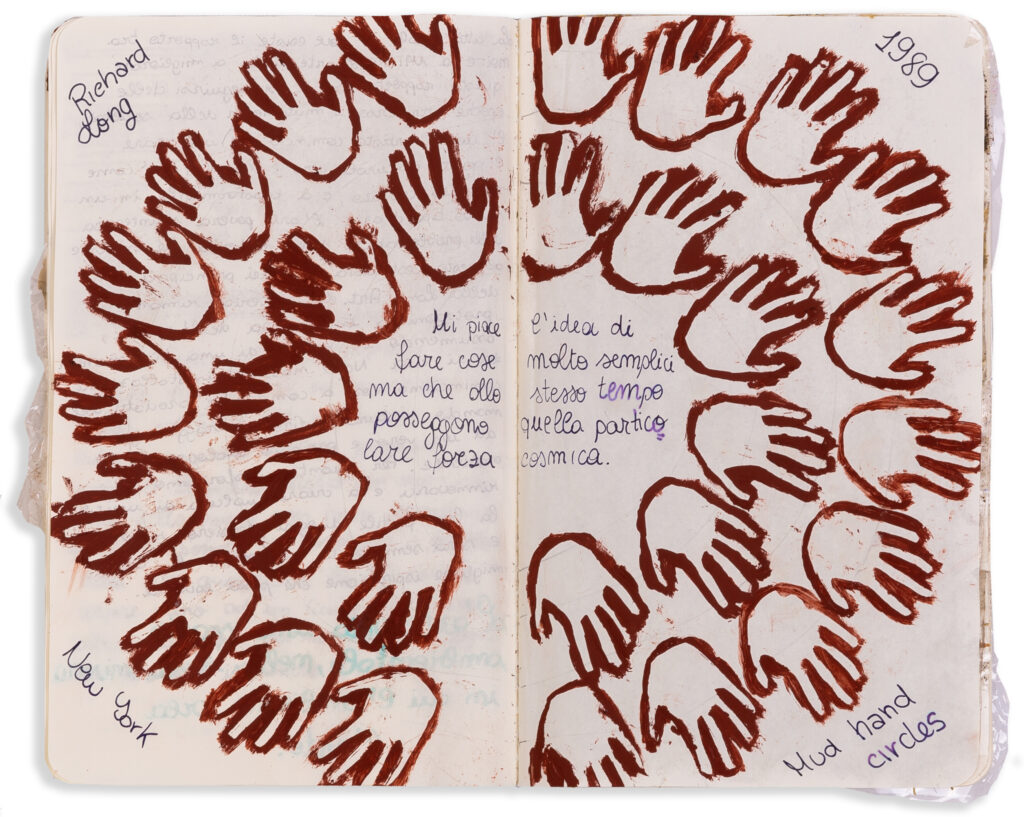 Richard
Long
1989
Mi piace l'idea di
fare cose molto semplici
ma che allo stesso tempo
posseggono quella partico
lare forza cosmica.
New York
Mud hand
circles